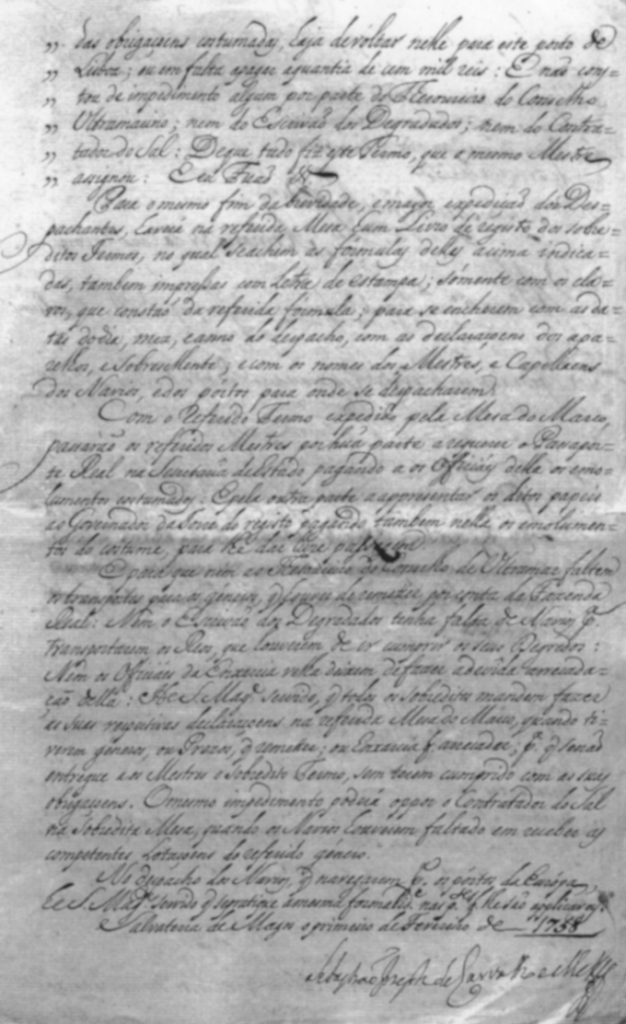 „ das obrigaçoens costumadas, haja de voltar nelle para este porto de
„ Lisboa; ou em falta a pagar a quantia de cem mil reis: E não cons=
„ tou de impedimento algum por parte do Thesoureiro do Conselho
„ Ultramarino; nem do Escrivaõ dos Degradados; nem do Contra=
„ tador do Sal: De que tudo fiz este Termo, que o mesmo Mestre
„ assignou: E eu Fuaõ &
Para o mesmo fim da brevidade, e mayor expediçaõ dos Des=
pachantes, haverá na referida Meza hum Livro de registo dos sobre=
ditos Termos, no qual se achem as formulas delles acima indica=
das, tambem impressas com Letra de estampa; sómente com os cla=
ros, que constaõ da referida formula; para se encherem com as da=
tas do dia, mez, e anno do despacho, com as declaraçoens dos apa=
relhos, e Sobrecellente; e com os nomes dos Mestres, e Capellaens
dos Navios, e dos portos para onde se despacharem.
Com o Referido Termo expedido pela Meza do Marco,
passaráõ os referidos Mestres por huã parte a requerer o Passapor=
te Real na Secretaria de Estado pagando a os Officiaes della os emo=
lumentos costumados: E pela outra parte a appresentar os ditos papeis
ao Governador da Torre do registo pagando tambem nella os emolumen=
tos do costume, para lhe dar Livre passagem.
E para que nem ao Thesoureiro do Conselho de Ultramar faltem
os transportes para os generos, q houver de remeter por conta da Fazenda
Real: Nem o Escrivaõ dos Degradados tenha falta de Navios p.
transportarem os Reos, que houverem de ir cumprir os seus Degredos:
Nem os Officiaes da Enxarcia velha deixem de fazer a devida arrecada=
çaõ della: He S. Mag.e servido, q todos os sobreditos mandem fazer
as suas respectivas declaraçoens na referida Meza do Marco, quando ti=
verem generos, ou Prezos, q remeter; ou Enxarcia p. arrecadar; p. q se naõ
entregue a os Mestres o sobredito Termo, sem terem cumprido com as suas
obrigaçoens. O mesmo impedimento poderá oppor o Contratador do Sal
na Sobredita Meza, quando os Navios houverem faltado em receber as
competentes Lotaçoens do referido género.
No despacho dos Navios, q navegarem p. os pórtos da Európa,
he S. Mag.e servido q se pratique a mesma formalid.e nas p.tes q lhe saõ applicaveis.
Salvaterra de Magos o primeiro de Fevereiro de 1758
Sebastiaõ Joseph de Carvalho e Mello